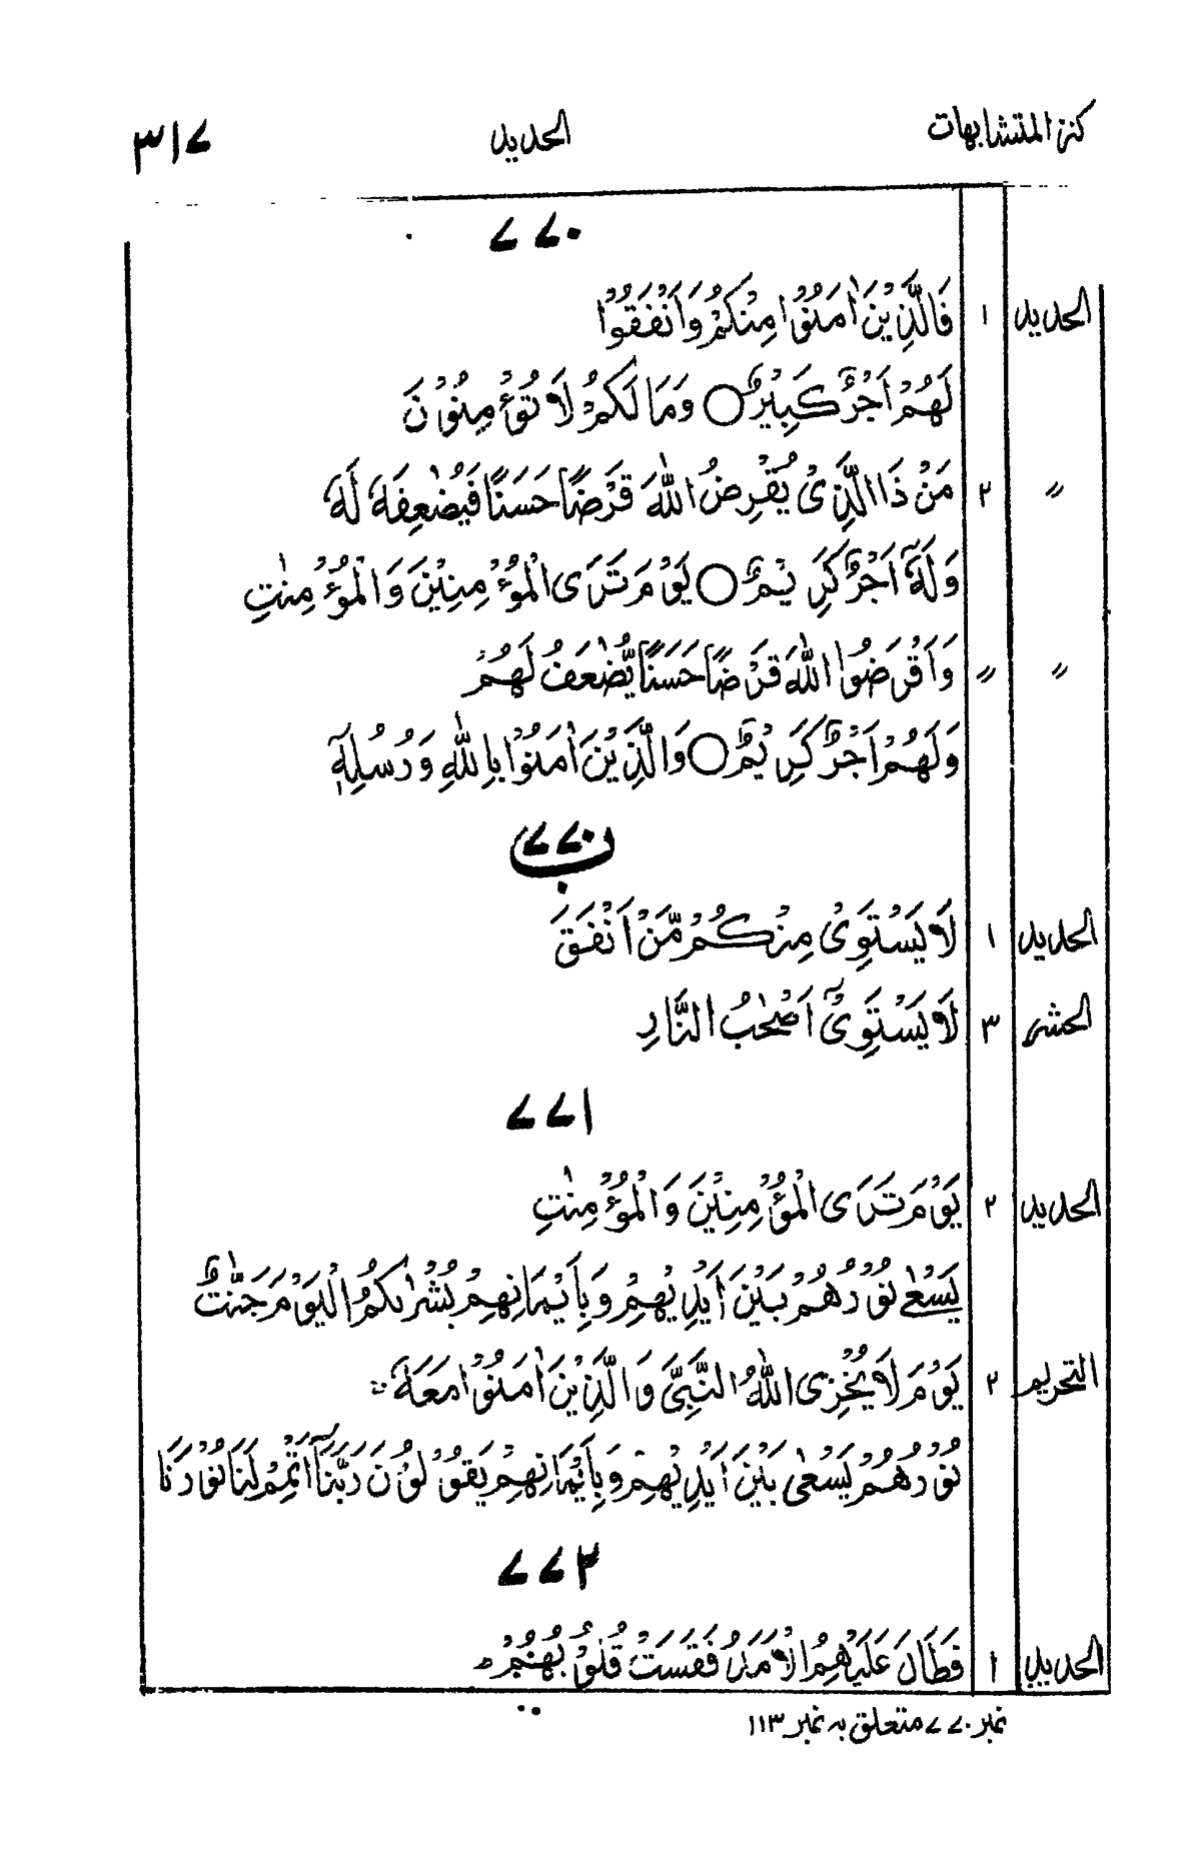 كنز المتشابهات الحديد ۳۱۷
۷۷۰
الحديد ۱ فَالَّذِيْنَ اٰمَنُوْا مِنْكُمْ وَاَنْفَقُوْا
لَهُمْ اَجْرٌ كَبِيْرٌ ○ وَمَا لَكُمْ لَا تُؤْمِنُوْنَ
〃 ۲ مَنْ ذَا الَّذِىْ يُقْرِضُ اللّٰهَ قَرْضًا حَسَنًا فَيُضٰعِفَهٗ لَهٗ
وَلَهٗۤ اَجْرٌ كَرِيْمٌ ○ يَوْمَ تَرَى الْمُؤْمِنِيْنَ وَالْمُؤْمِنٰتِ
〃 〃 وَاَقْرَضُوا اللّٰهَ قَرْضًا حَسَنًا يُّضٰعَفُ لَهُمْ
وَلَهُمْ اَجْرٌ كَرِيْمٌ ○ وَالَّذِيْنَ اٰمَنُوْا بِاللّٰهِ وَرُسُلِهٖۤ
۷۷۰ب
الحديد ۱ لَا يَسْتَوِىْ مِنْكُمْ مَّنْ اَنْفَقَ
الحشر ۳ لَا يَسْتَوِىْۤ اَصْحٰبُ النَّارِ
۷۷۱
الحديد ۲ يَوْمَ تَرَى الْمُؤْمِنِيْنَ وَالْمُؤْمِنٰتِ
يَسْعٰى نُوْرُهُمْ بَيْنَ اَيْدِيْهِمْ وَبِاَيْمَانِهِمْ بُشْرٰىكُمُ الْيَوْمَ جَنّٰتٌ
التحريم ۲ يَوْمَ لَا يُخْزِى اللّٰهُ النَّبِىَّ وَالَّذِيْنَ اٰمَنُوْا مَعَهٗ
نُوْرُهُمْ يَسْعٰى بَيْنَ اَيْدِيْهِمْ وَبِاَيْمَانِهِمْ يَقُوْلُوْنَ رَبَّنَاۤ اَتْمِمْ لَنَا نُوْرَنَا
۷۷۲
الحديد ۱ فَطَالَ عَلَيْهِمُ الْاَمَدُ فَقَسَتْ قُلُوْبُهُمْ ؕ
نمبر ۷۷۰ متعلق بہ نمبر ۱۱۳